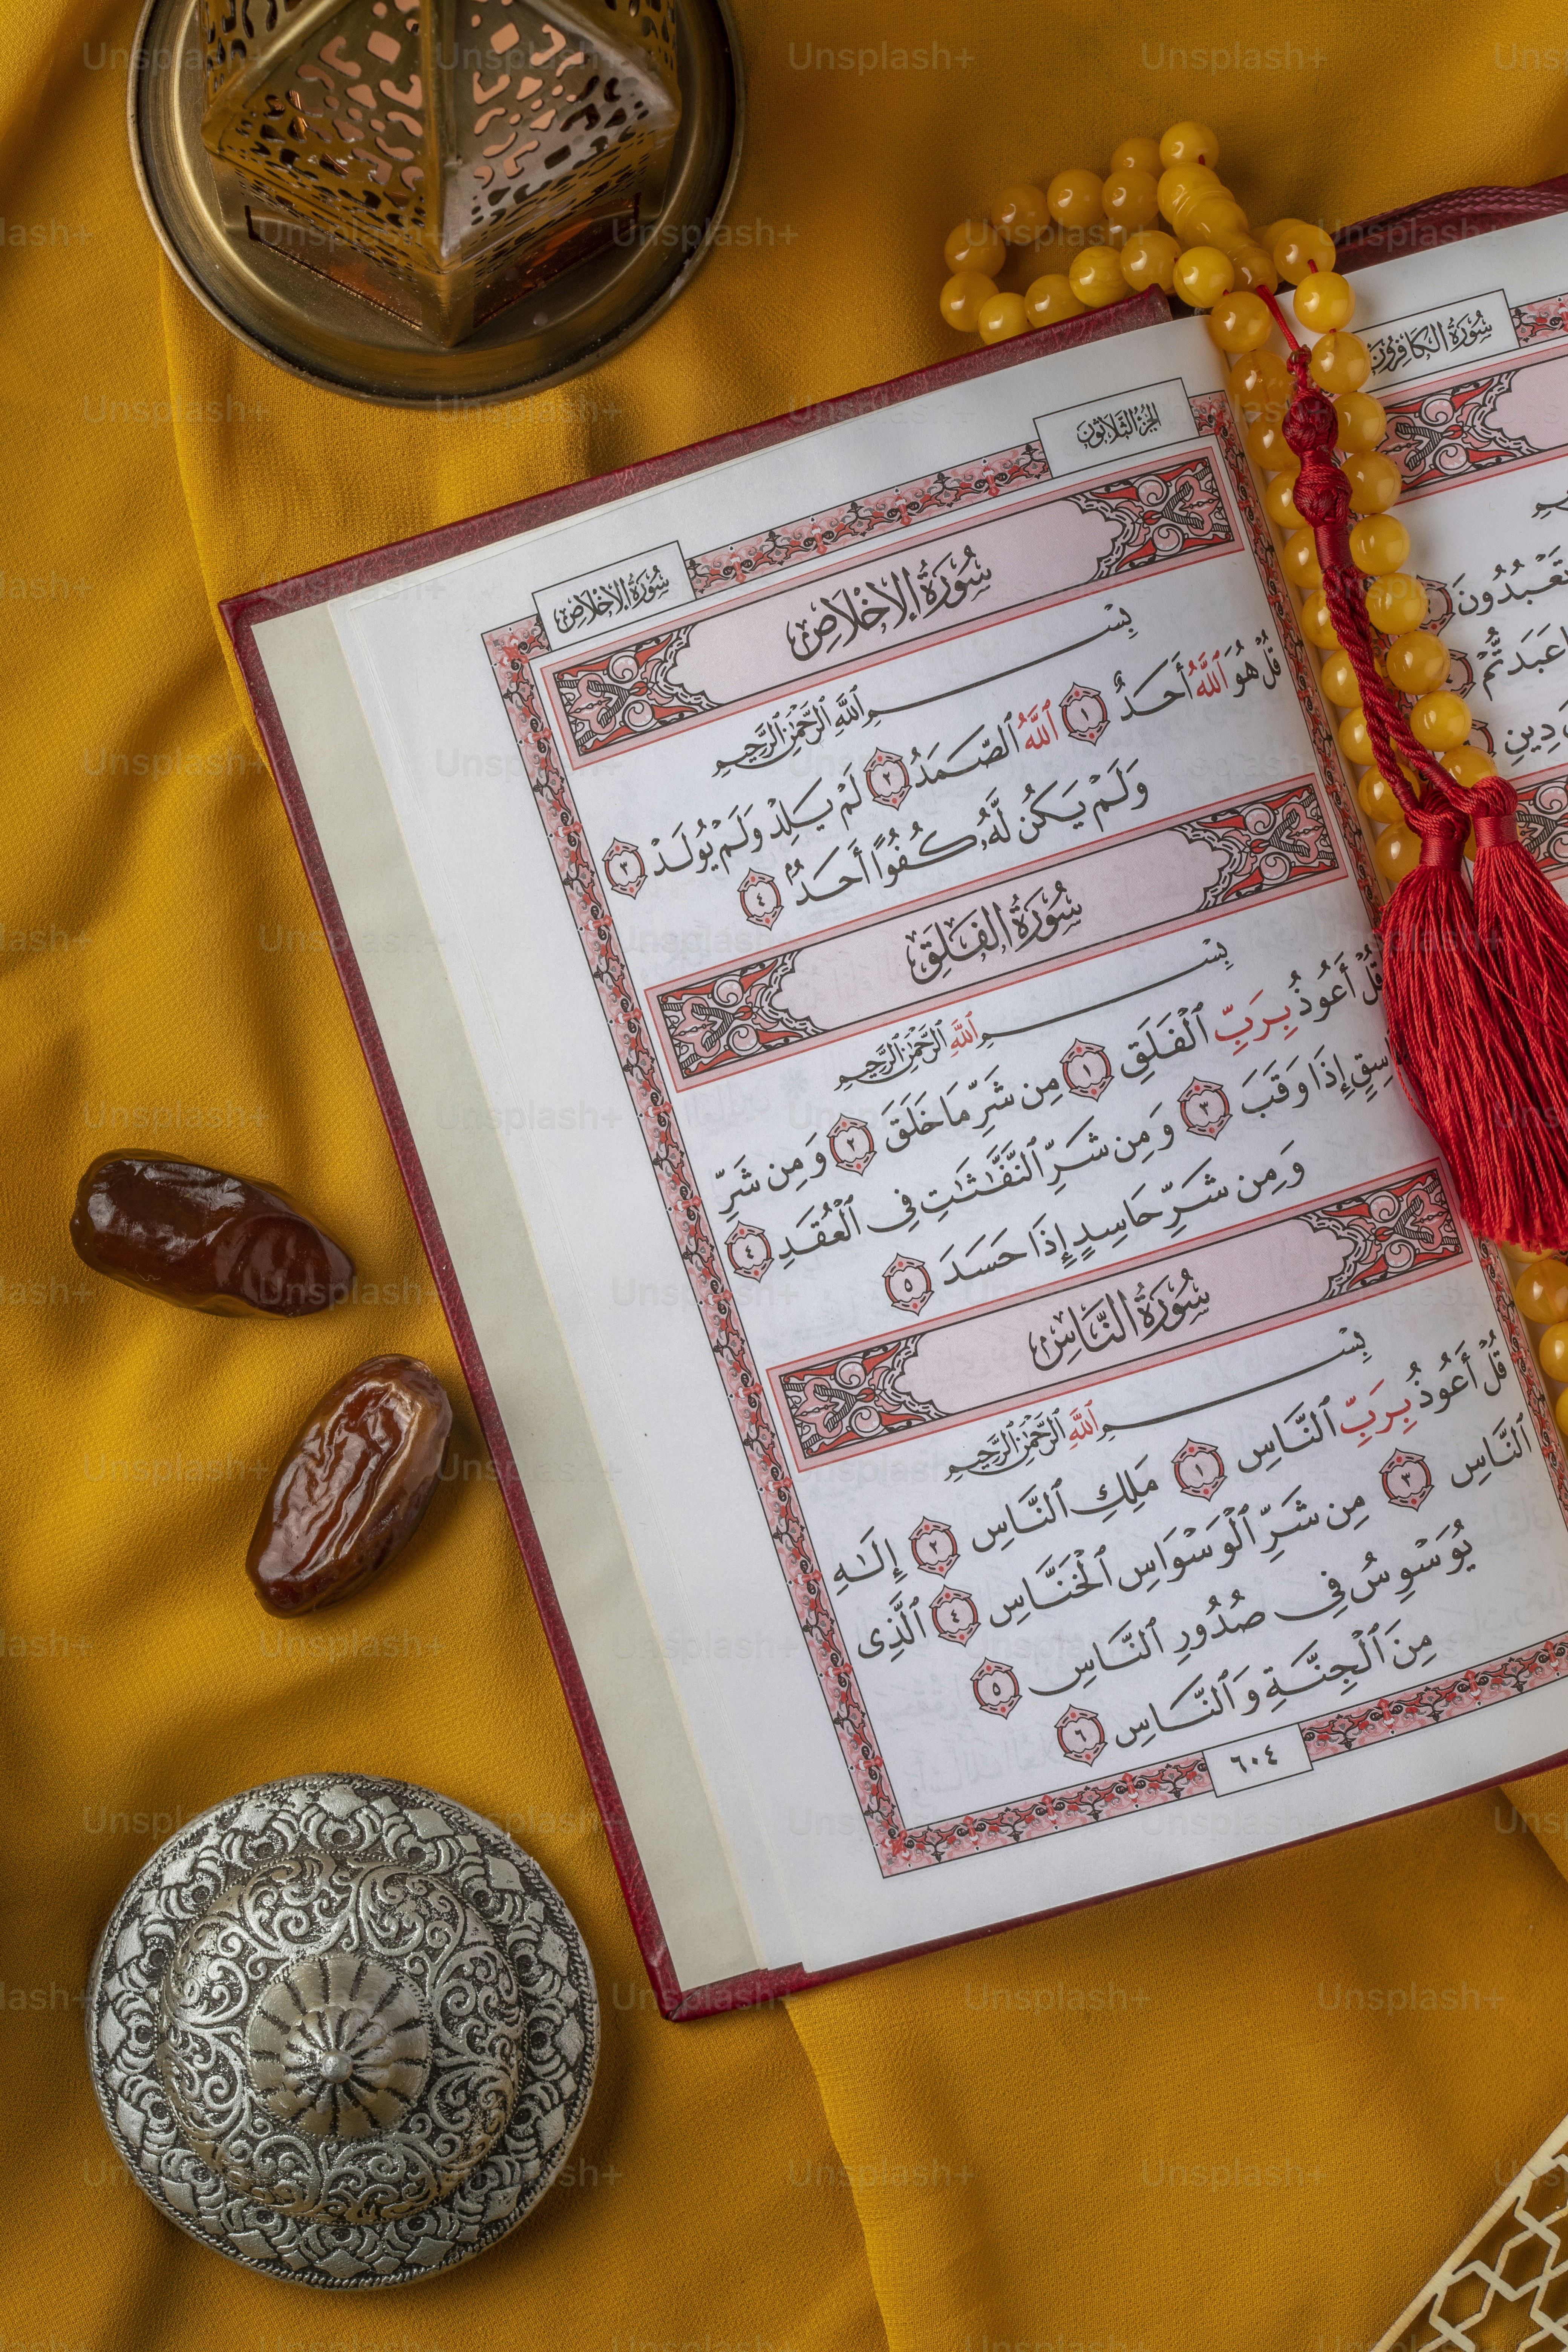 سُورَةُ الكَافِرُونَ
تَعْبُدُونَ
عَبَدتُّمْ
دِينِ
الجُزْءُ الثَّلَاثُونَ
سُورَةُ الإِخْلَاصِ
سُورَةُ الإِخْلَاصِ
بِسْمِ ٱللَّهِ ٱلرَّحْمَٰنِ ٱلرَّحِيمِ
قُلْ هُوَ ٱللَّهُ أَحَدٌ ١ ٱللَّهُ ٱلصَّمَدُ ٢ لَمْ يَلِدْ وَلَمْ يُولَدْ ٣
وَلَمْ يَكُن لَّهُۥ كُفُوًا أَحَدٌۢ ٤
سُورَةُ الفَلَقِ
بِسْمِ ٱللَّهِ ٱلرَّحْمَٰنِ ٱلرَّحِيمِ
قُلْ أَعُوذُ بِرَبِّ ٱلْفَلَقِ ١ مِن شَرِّ مَا خَلَقَ ٢ وَمِن شَرِّ
إِذَا وَقَبَ ٣ وَمِن شَرِّ ٱلنَّفَّٰثَٰتِ فِى ٱلْعُقَدِ ٤
وَمِن شَرِّ حَاسِدٍ إِذَا حَسَدَ ٥
سُورَةُ النَّاسِ
بِسْمِ ٱللَّهِ ٱلرَّحْمَٰنِ ٱلرَّحِيمِ
قُلْ أَعُوذُ بِرَبِّ ٱلنَّاسِ ١ مَلِكِ ٱلنَّاسِ ٢ إِلَٰهِ
ٱلنَّاسِ ٣ مِن شَرِّ ٱلْوَسْوَاسِ ٱلْخَنَّاسِ ٤ ٱلَّذِى
يُوَسْوِسُ فِى صُدُورِ ٱلنَّاسِ ٥
مِنَ ٱلْجِنَّةِ وَٱلنَّاسِ ٦
٦٠٤
Unsplash+